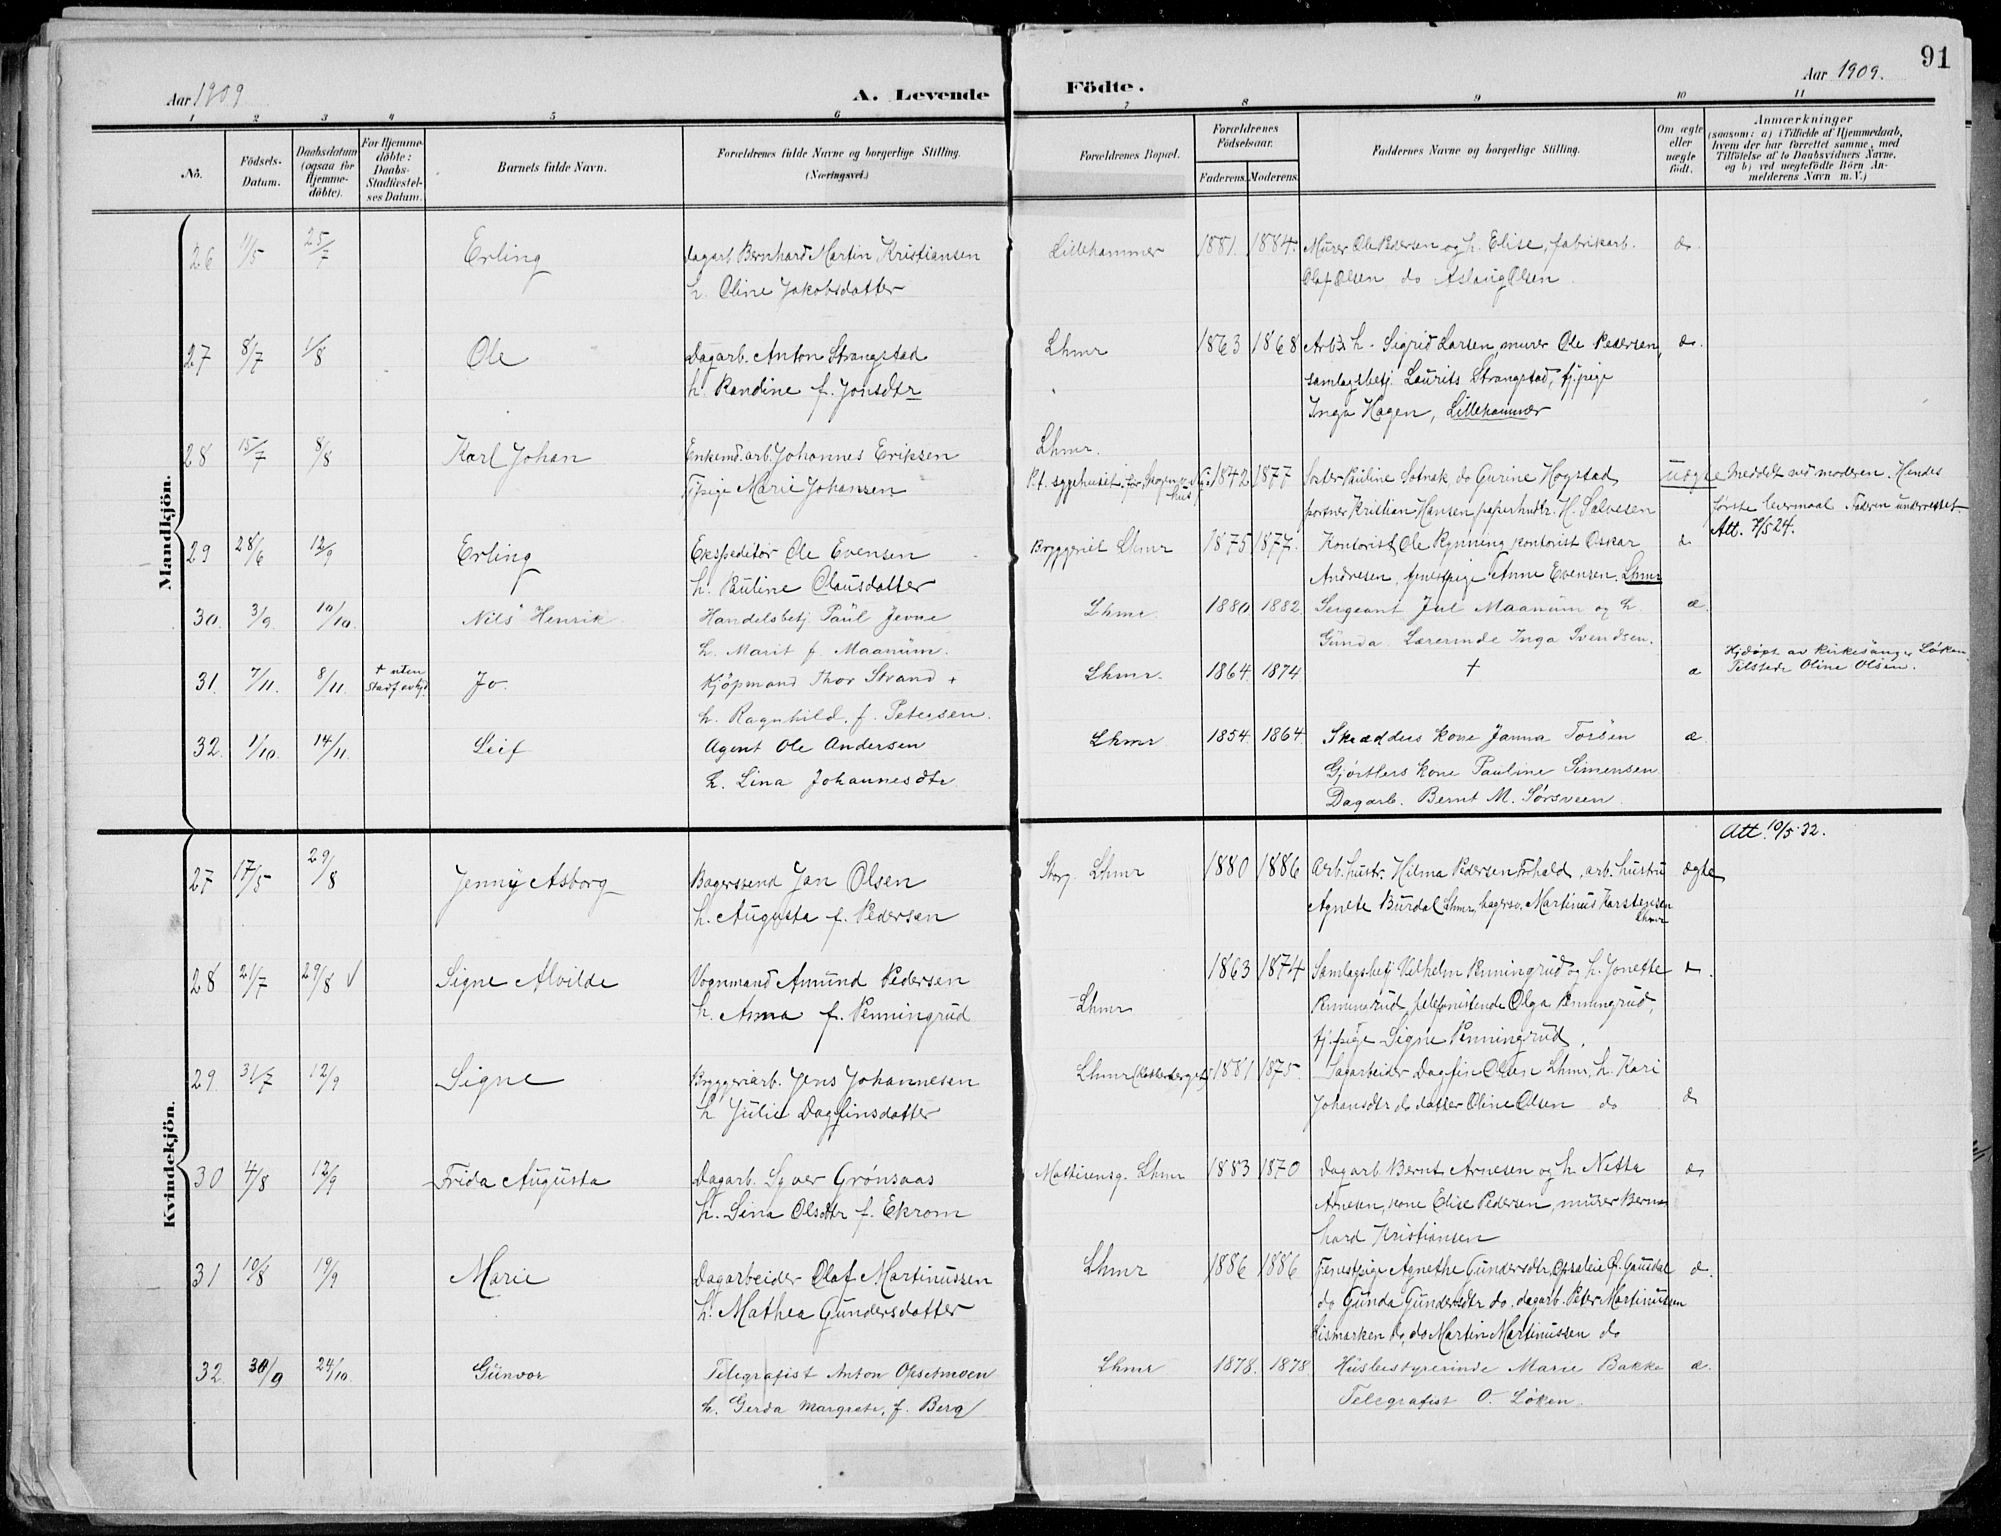 91
Aar 1909
A. Levende
Födte.
Aar 1909.
1 2 3 4 5 6 7 8 9 10 11
No.
Födsels-Datum.
Daabsdatum (ogsaa for Hjemme-döbte).
For Hjemme-döbte: Daabs-Stadfæstel-ses Datum.
Barnets fulde Navn.
Forældrenes fulde Navne og borgerlige Stilling.
(Næringsvei.)
Forældrenes Bopæl.
Forældrenes Födselsaar.
Faderens. Moderens.
Faddernes Navne og borgerlige Stilling.
Om ægte eller uægte födt.
Anmærkninger
(saasom: a) i Tilfælde af Hjemmedaab,
hvem der har forrettet samme, med
Tilföielse af to Daabsvidners Navne,
og b) ved uægtefödte Börn An-
melderens Navn m. V.)
Mandkjön.
26 11/5 25/7 Erling dagarb Bernhard Martin Kristiansen Lillehammer 1881. 1884. Murer Ole Pedersen og h. Elise, fabrikarb. æ.
h. Oline Jakobsdatter Olaf Olsen, do Aslaug Olsen
27 8/7 1/8 Ole Dagarb. Anton Strangstad Lhmr 1863 1868 Arb. h. Sigrid Larsen, murer Ole Pedersen, æ.
h. Randine f. Jonsdtr samlagsbetj. Laurits Strangstad, tj.pige
Inga Hagen, Lillehammer
28 15/7 8/8 Karl Johan Enkemd. arb. Johannes Eriksen Lhmr.
Tj.pige Marie Johansen P.t. sygehuset, 1842 1877 Søster Pauline Sotnak do Gurine Hogstad, uægte Meddelt ved moderen. Hendes
portner Kristian Hansen papirhndlr. H. Salvesen første leiermaal. Faderen underrettet.
Att. 7/5 24.
29 28/6 12/9 Erling Ekspeditør Ole Evensen Bryggeriet Lhmr 1875 1877. Kontorist Ole Rynning, kontorist Oskar æ
h. Pauline Olausdatter Andresen, tjenestpige Anne Evensen, Lhmr
30. 3/9. 10/10. Nils Henrik Handelsbetj. Paul Jevne Lhmr 1880 1882. Sergeant Jul Maanum og h. æ.
h. Marit f. Maanum. Gunda. Lærerinde Inga Svendsen.
31. 7/11. 8/11. + uten Stadfæstelse Jo. Kjøpmand Thor Strand + Lhmr. 1864 1874 + æ Hjdøpt av kirkesanger Løken.
h. Ragnhild. f. Petersen. Tilstede Oline Olsen.
32. 1/10. 14/11. Leif Agent Ole Andersen Lhmr 1854. 1864 Skrædders kone Janna Torsen æ.
h. Lina Johannesdtr. Gjørtlers kone Pauline Simensen
Dagarb. Bernt M. Sørsveen.
Kvindekjön.
Att. 10/5 32.
27 17/5 29/8 Jenny Asborg Bagersvend Jan Olsen Storg. Lhmr 1880 1886 Arb. hustr. Hilma Pedersen, arb. hustru ægte
h. Augusta f. Pedersen Agnete Burdal Lhmr, bagersv. Martinus Karstensen
Lhmr
28 21/7 29/8 √ Signe Alvilde Vognmand Amund Pedersen Lhmr 1863 1874 Samlagsbetj Vilhelm Penningrud og h. Jonette æ.
h. Anna f. Penningrud Penningrud, telefonistinde Olga Penningrud,
tj.pige Signe Penningrud.
29. 31/7 12/9 Signe Bryggeriarb. Jens Johannesen Lhmr 1881 1875. Sagarbeider Dagfin Olsen Lhmr, h. Kari
h Julie Dagfinsdatter Johansdtr do datter Oline Olsen do æ
30 4/8 12/9 Frida Augusta Dagarb. Syver Grønsaas Mathiesensg. Lhmr 1883 1870 Dagarb. Bernt Arnesen og h. Netta æ
h. Lina Olsdtr f. Ekrom Arnesen, kone Elise Pedersen, murer Bern-
hard Kristiansen
31 10/8 19/9 Marie Dagarbeider Olaf Martinussen Lhmr 1886 1886 Tjenestpige Agnethe Gundersdtr, Ø. Gausdal æ.
h. Mathea Gundersdatter do Gunda Gundersdtr do. dagarb. Peter Martinussen
do, do Martin Martinussen do
32. 30/9 24/10. Gunvor Telegrafist Anton Opsetmoen Lhmr 1878. 1878 Husbestyrerinde Marie Bakke æ.
h. Gerda Margrete, f. Berg Telegrafist O. Løken.